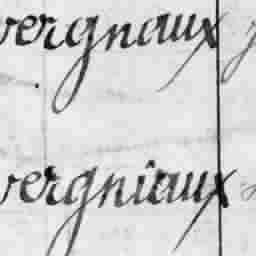 vergnaux
vergniaux